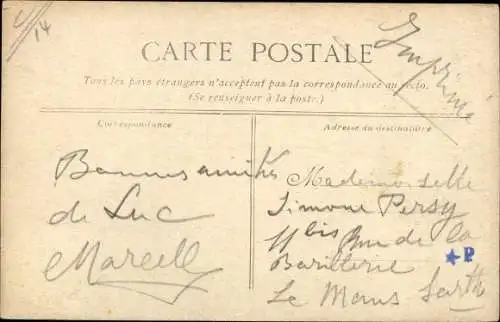 4/14
CARTE POSTALE
Imprimé
Tous les pays étrangers n'acceptent pas la correspondance au recto.
(Se renseigner à la poste.)
Correspondance
Adresse du destinataire
Bonnes amitiés
de Luc
Marcelle
Mademoiselle
Simone Persy
11 bis Rue de la
Barillerie
★P
Le Mans Sarthe